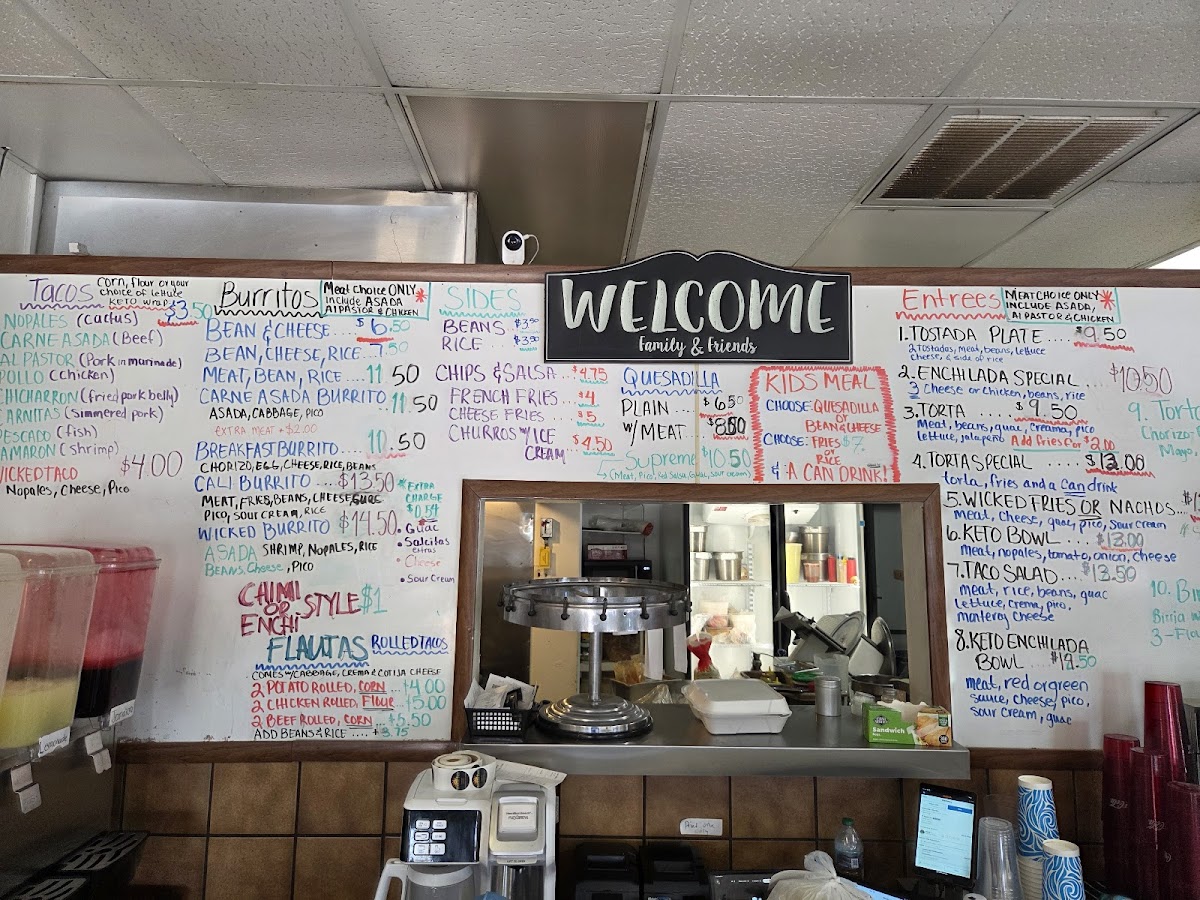 Tacos
Corn, flour or your
choice of lettuce
KETO wrap
$3.50
NOPALES (cactus)
CARNE ASADA (Beef)
AL PASTOR (Pork in marinade)
POLLO (chicken)
CHICHARRON (fried pork belly)
CARNITAS (simmered pork)
PESCADO (fish)
CAMARON (shrimp)
WICKED TACO $4.00
Nopales, Cheese, Pico
Burritos
Meat choice ONLY
include ASADA
Al PASTOR & CHICKEN
BEAN & CHEESE.... $6.50
BEAN, CHEESE, RICE...7.50
MEAT, BEAN, RICE....11.50
CARNE ASADA BURRITO 11.50
ASADA, CABBAGE, PICO
EXTRA MEAT + $2.00
BREAKFAST BURRITO 10.50
CHORIZO, EGG, CHEESE, RICE, BEANS
CALI BURRITO ... $13.50
MEAT, FRIES, BEANS, CHEESE, GUAC
PICO, SOUR CREAM, RICE
WICKED BURRITO $14.50
ASADA SHRIMP, NOPALES, RICE
BEANS, Cheese, PICO
*EXTRA
CHARGE
$0.54
• GUAC
• Salcitas
extras
• Cheese
• Sour Cream
CHIMI
OR STYLE $1
ENCHI
FLAUTAS ROLLED TACOS
COMES W/CABBAGE, CREMA & COTIJA CHEESE
2 POTATO ROLLED, CORN ...$4.00
2 CHICKEN ROLLED, FLOUR ...$5.00
2 BEEF ROLLED, CORN ...$5.50
ADD BEANS & RICE .... +3.75
SIDES
BEANS $3.50
RICE .. $3.50
CHIPS & SALSA .. $4.75
FRENCH FRIES... $4
CHEESE FRIES... $5
CHURROS W/ICE
CREAM .. $4.50
WELCOME
Family & Friends
QUESADILLA
PLAIN ... $6.50
W/ MEAT. $8.50
Supreme $10.50
(Meat, Pico, Red Salsa, Guac, Sour Cream)
KIDS MEAL
CHOOSE: QUESADILLA
OR
BEAN & CHEESE
CHOOSE: FRIES $7.
OR
RICE
& A CAN DRINK!
Entrees
MEAT CHOICE ONLY
INCLUDE ASADA,
Al PASTOR & CHICKEN
1. TOSTADA PLATE .. $9.50
2 Tostadas, meat, beans, lettuce
cheese, & side of rice
2. ENCHILADA SPECIAL ... $10.50
3 Cheese or Chicken, beans, rice
3. TORTA ..... $9.50
Meat, beans, guac, crema, pico
lettuce, jalapeño Add fries for $2.00
4. TORTA SPECIAL .... $12.00
torta, fries and a Can drink
5. WICKED FRIES OR NACHOS...
Meat, cheese, guac, pico, sour cream
6. KETO BOWL .... $13.00
Meat, nopales, tomato, onion, cheese
7. TACO SALAD .... $13.50
meat, rice, beans, guac
Lettuce, crema, pico,
monterey cheese
8. KETO ENCHILADA
BOWL ... $12.50
meat, red or green
sauce, cheese, pico,
sour cream, guac
9. Tort
Chorizo,
Mayo,
10. Bir
Birria
3-
Lemonade
Jamaica
Sandwich